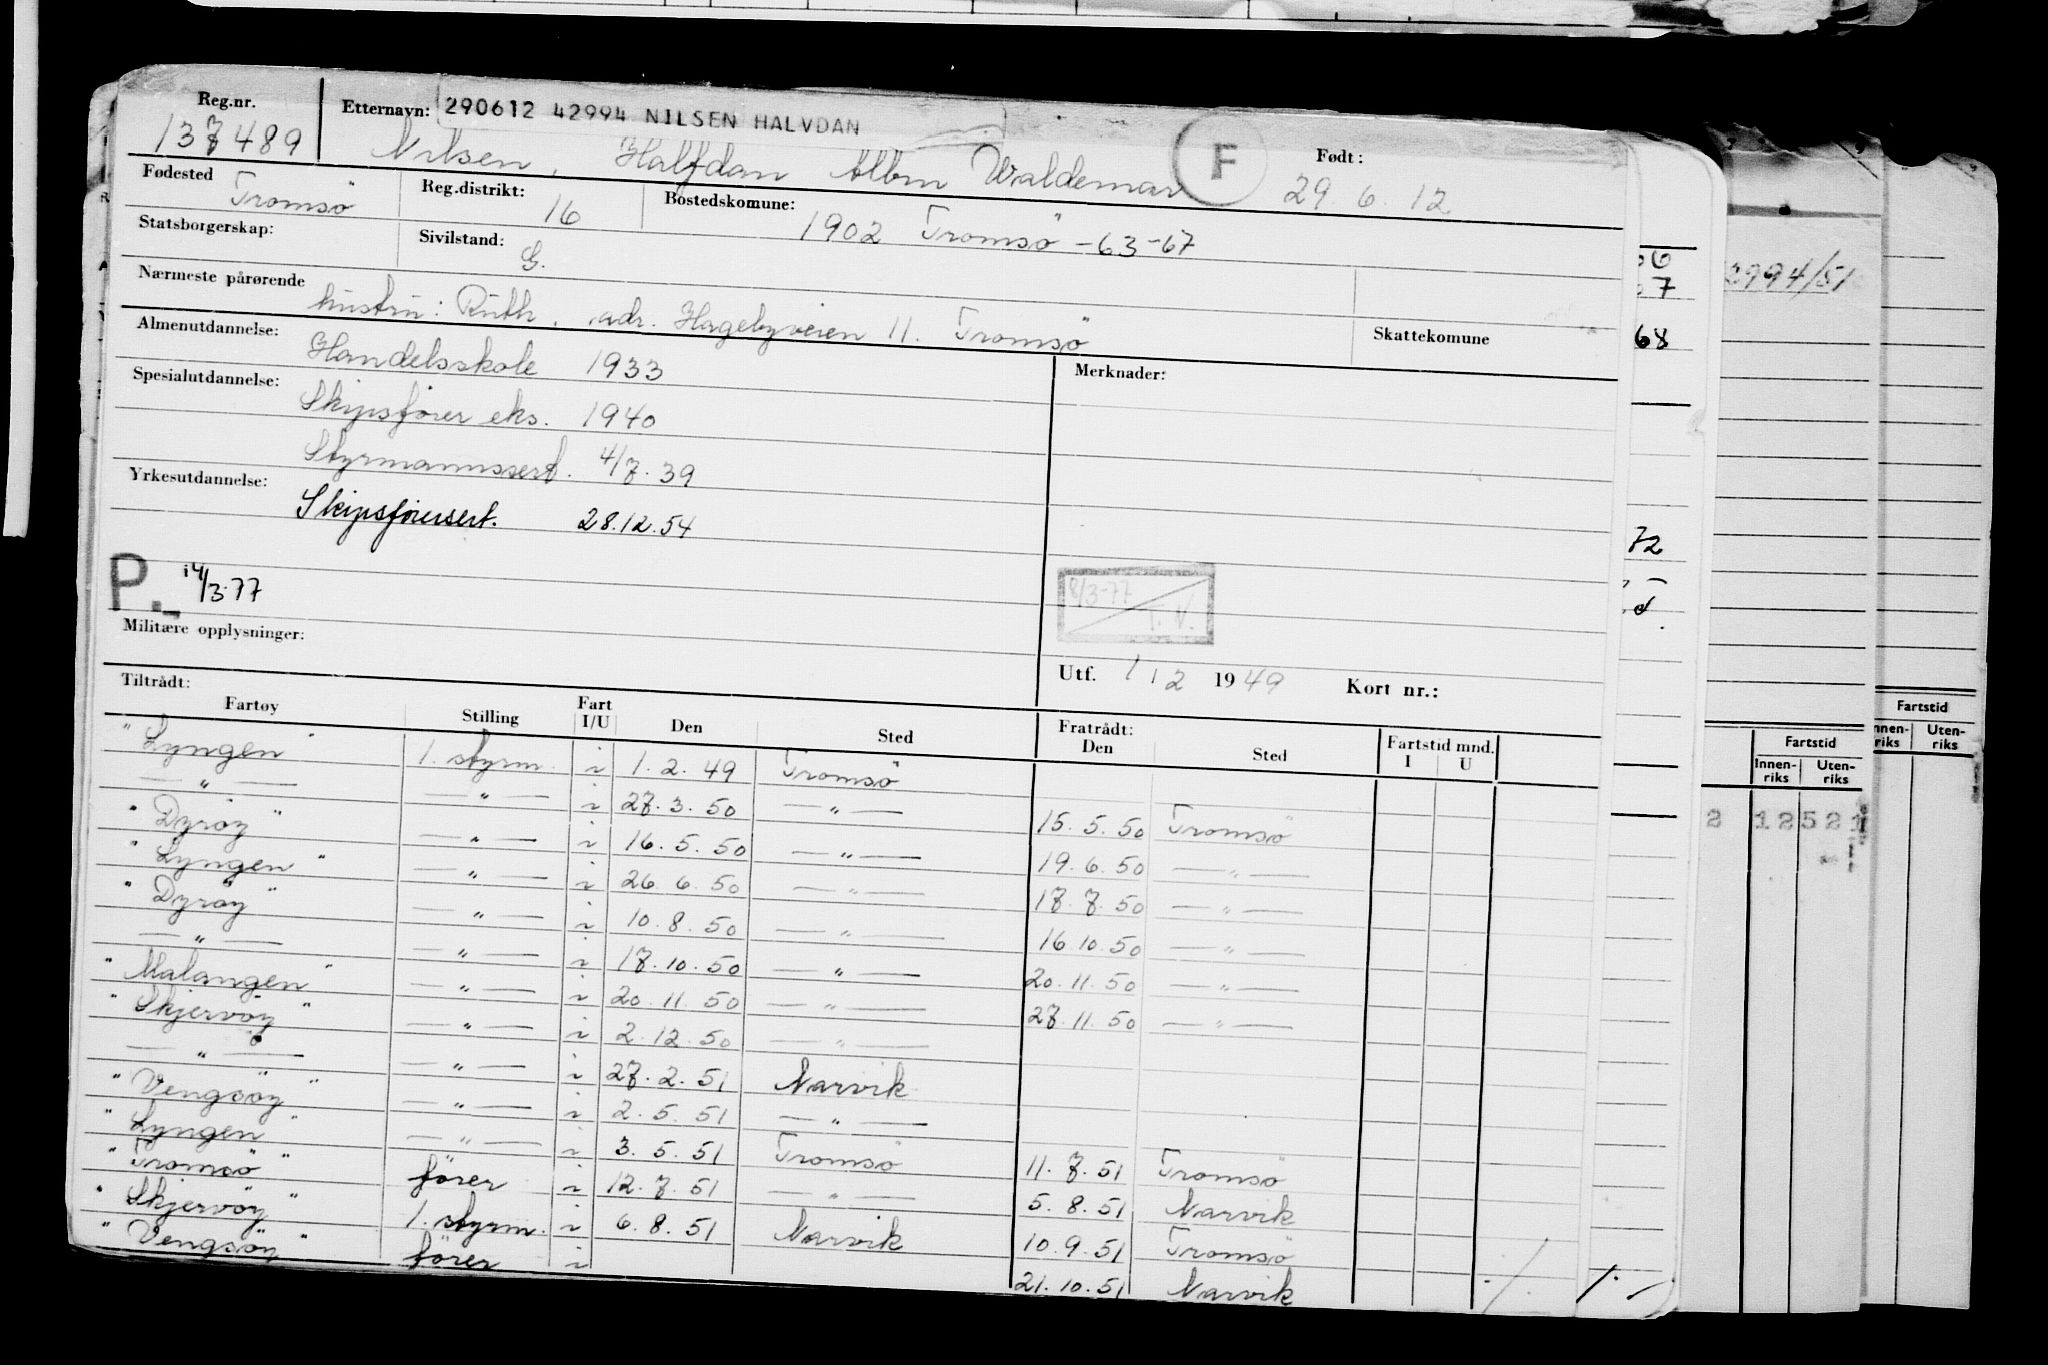 Reg.nr. Etternavn: 290612 42994 NILSEN HALVDAN
137489 Nilsen, Halfdan Albin Waldemar F Født: 29.6.12
Fødested Tromsö Reg.distrikt: 16 Bostedskomune: 1902 Tromsö -63-67
Statsborgerskap: Sivilstand: G.
Nærmeste pårørende hustru: Ruth, adr. Hagebyveien 11. Tromsö
Skattekomune
Almenutdannelse: Handelsskole 1933 Merknader:
Spesialutdannelse: Skipsförer eks. 1940
Styrmannssert. 4/7.39
Yrkesutdannelse: Skipsförersert. 28.12.54
P. 14/3-77
8/3-77 T. N.
Militære opplysninger:
Utf. 1/2 1949 Kort nr.:
Tiltrådt: Fratrådt:
Fartøy Stilling Fart I/U Den Sted Den Sted Fartstid mnd. I U
"Lyngen" 1. styrm. i 1.2.49 Tromsö
— " — — " — i 27.3.50 — " — 15.5.50 Tromsö
"Dyröy" — " — i 16.5.50 — " — 19.6.50 — " —
"Lyngen" — " — i 26.6.50 — " — 17.7.50 — " —
"Dyröy" — " — i 10.8.50 — " — 16.10.50 — " —
— " — — " — i 17.10.50 — " — 20.11.50 — " —
"Malangen" — " — i 20.11.50 — " — 27.11.50 — " —
"Skjervöy" — " — i 2.12.50 — " —
— " — — " — i 27.2.51 Narvik
"Vengsöy" — " — i 2.5.51 — " —
"Lyngen" — " — i 3.5.51 Tromsö 11.7.51 Tromsö
"Tromsö" förer i 12.7.51 — " — 5.8.51 Narvik
"Skjervöy" 1. styrm. i 6.8.51 Narvik 10.9.51 Tromsö
"Vengsöy" förer i 21.10.51 Narvik
7
68
72
2994/51
Fartstid
Innen-riks Uten-riks
2 12 521
Fartstid
Innen-riks Uten-riks